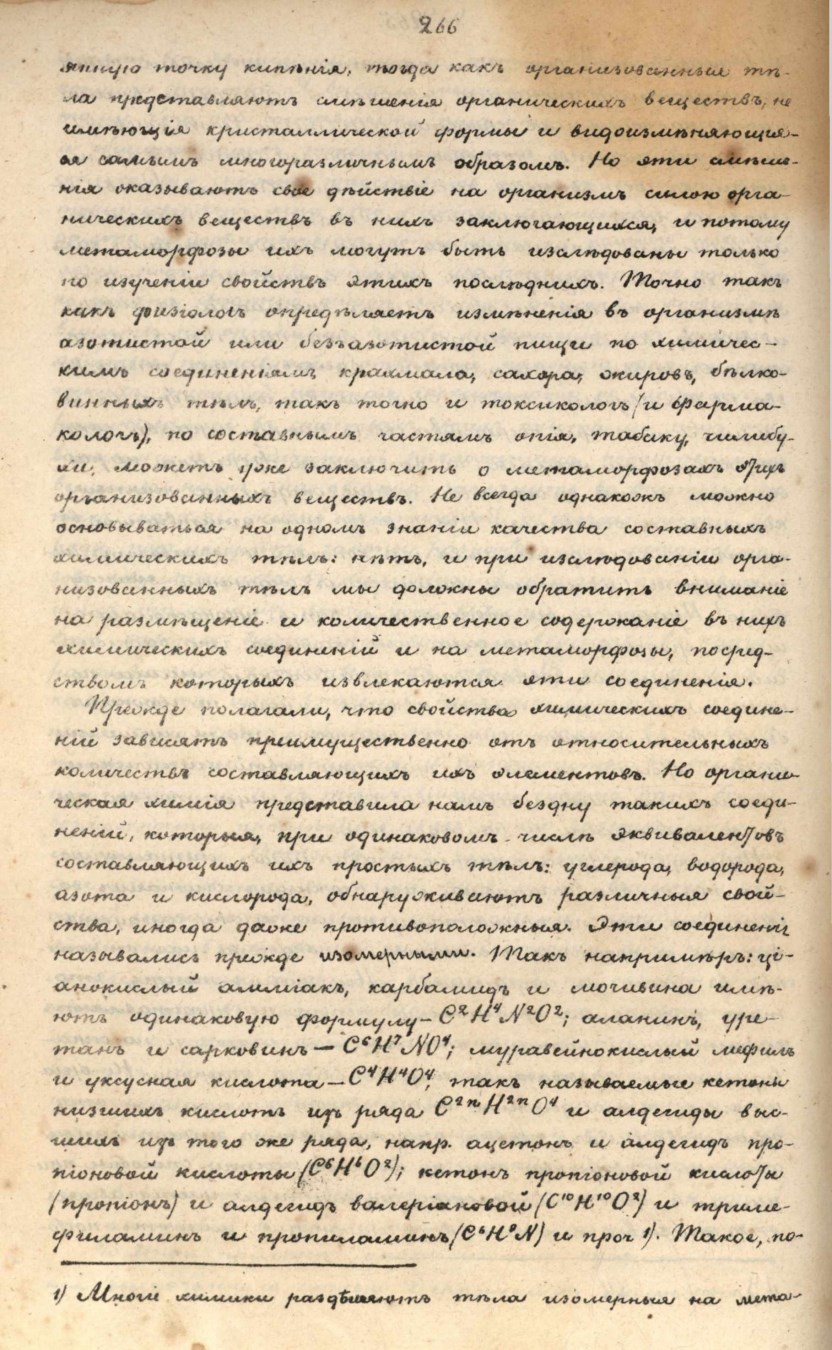 266
янную точку кипѣнія, тогда какъ организованныя тѣ-
ла представляютъ смѣшенія органическихъ веществъ, не
имѣющія кристаллической формы и видоизмѣняющія-
ся самымъ многоразличнымъ образомъ. Но эти смѣше-
нія оказываютъ свое дѣйствіе на организмъ силою орга-
ническихъ веществъ въ нихъ заключающихся, и потому
метаморфозы ихъ могутъ быть изслѣдованы только
по изученіи свойствъ этихъ послѣднихъ. Точно такъ
какъ физіологъ опредѣляетъ измѣненія въ организмѣ
азотистой или безъазотистой пищи по химичес-
кимъ соединеніямъ крахмала, сахара, жировъ, бѣлко-
винныхъ тѣлъ, такъ точно и токсикологъ (и фарма-
кологъ), по составнымъ частямъ опія, табаку, чилибу-
хи, можетъ уже заключить о метаморфозахъ этихъ
организованныхъ веществъ. Не всегда однакожъ можно
основываться на одномъ знаніи качества составныхъ
химическихъ тѣлъ: нѣтъ, и при изслѣдованіи орга-
низованныхъ тѣлъ мы должны обратить вниманіе
на размѣщеніе и количественное содержаніе въ нихъ
химическихъ соединеній и на метаморфозы, посред-
ствомъ которыхъ извлекаются эти соединенія.
Прежде полагали, что свойства химическихъ соедине-
ній зависятъ преимущественно отъ относительныхъ
количествъ составляющихъ ихъ элементовъ. Но органи-
ческая химія представила намъ бездну такихъ соеди-
неній, которыя, при одинаковомъ числѣ эквивалентовъ
составляющихъ ихъ простыхъ тѣлъ: углерода, водорода,
азота и кислорода, обнаруживаютъ различныя свой-
ства, иногда даже противоположныя. Эти соединенія
назывались прежде изомерными. Такъ напримѣръ: ці-
анокислый амміакъ, карбамидъ и мочивина имѣ-
ютъ одинаковую формулу — C²H⁴N²O²; аланинъ, уре-
танъ и сарковинъ — C⁶H⁷NO⁴; муравейнокислый мефилъ
и уксусная кислота — C⁴H⁴O⁴, такъ называемые кетоны
низшихъ кислотъ изъ ряда C²ⁿH²ⁿO⁴ и алдегиды выс-
шихъ изъ того же ряда, напр. ацетонъ и алдегидъ про-
піоновой кислоты (C⁶H⁶O²); кетонъ пропіоновой кислоты
(пропіонъ) и алдегидъ валеріановой (C¹⁰H¹⁰O²) и триме-
филаминъ и пропиламинъ (C⁶H⁹N) и проч ¹). Такое, по-
1) Многіе химики раздѣляютъ тѣла изомерныя на мета-